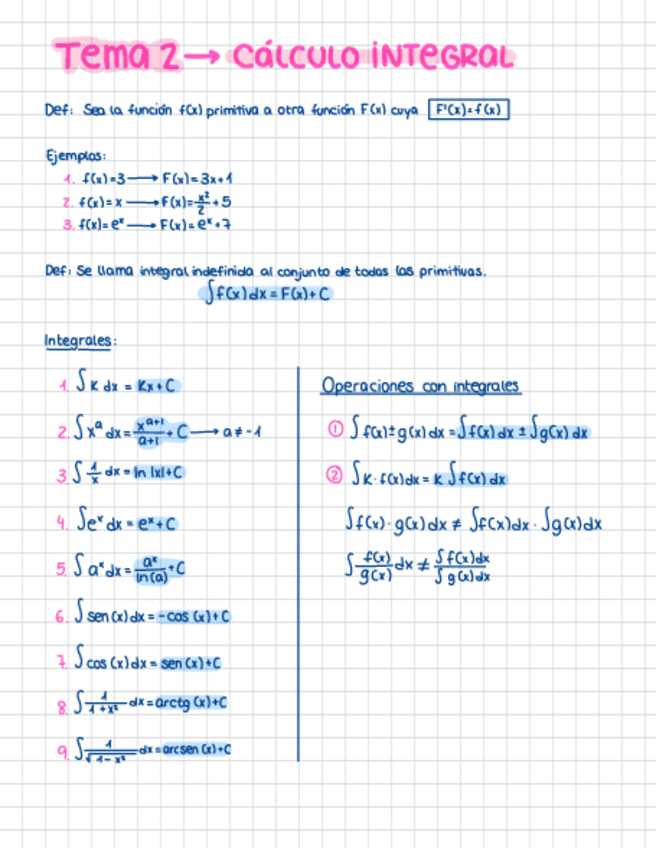 Tema 2 → CÁLCULO INTEGRAL
Def: Sea la función f(x) primitiva a otra función F(x) cuya F'(x)=f(x)
Ejemplos:
1. f(x)=3 → F(x)=3x+1
2. f(x)=x → F(x)=x²/2+5
3. f(x)=eˣ → F(x)=eˣ+7
Def: Se llama integral indefinida al conjunto de todas las primitivas.
∫f(x)dx = F(x)+C
Integrales:
1. ∫K dx = Kx+C
2. ∫xᵃ dx = xᵃ⁺¹/a+1 + C → a≠-1
3. ∫1/x dx = ln|x|+C
4. ∫eˣ dx = eˣ+C
5. ∫aˣ dx = aˣ/ln(a) + C
6. ∫sen(x)dx = -cos(x)+C
7. ∫cos(x)dx = sen(x)+C
8. ∫1/1+x² dx = arctg(x)+C
9. ∫1/√1-x² dx = arcsen(x)+C
Operaciones con integrales
① ∫f(x)±g(x)dx = ∫f(x)dx ± ∫g(x)dx
② ∫K·f(x)dx = K∫f(x)dx
∫f(x)·g(x)dx ≠ ∫f(x)dx·∫g(x)dx
∫f(x)/g(x) dx ≠ ∫f(x)dx/∫g(x)dx